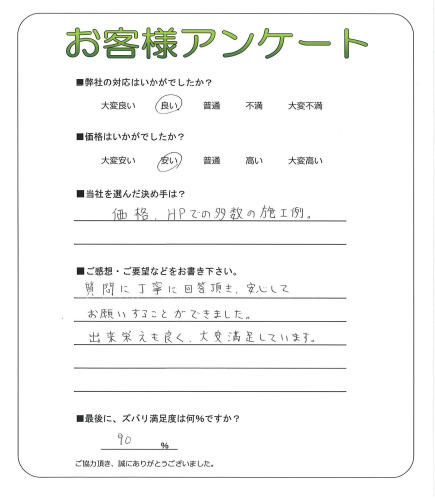 お客様アンケート
■弊社の対応はいかがでしたか？
大変良い 良い 普通 不満 大変不満
■価格はいかがでしたか？
大変安い 安い 普通 高い 大変高い
■当社を選んだ決め手は？
価格、HPでの多数の施工例。
■ご感想・ご要望などをお書き下さい。
質問に丁寧に回答頂き、安心して
お願いすることができました。
出来栄えも良く、大変満足しています。
■最後に、ズバリ満足度は何％ですか？
90 %
ご協力頂き、誠にありがとうございました。